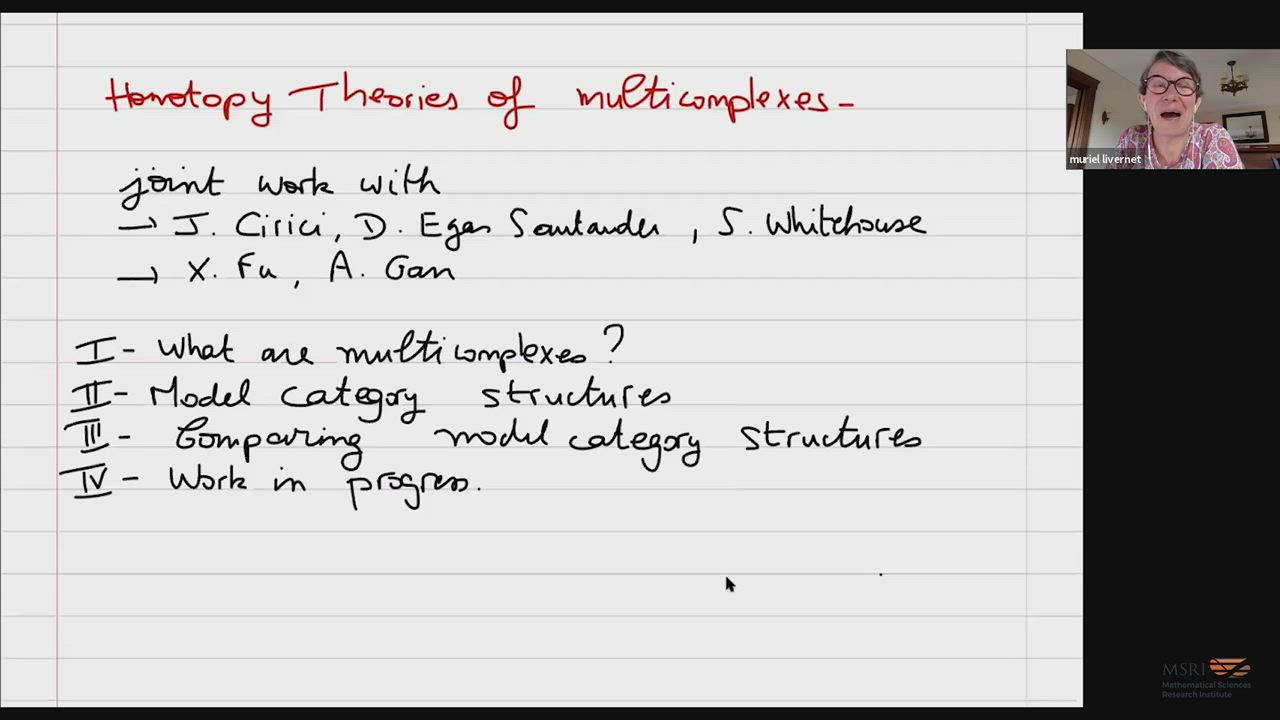 Homotopy Theories of multicomplexes -
joint work with
→ J. Cirici, D. Egas Santander, S. Whitehouse
→ X. Fu, A. Gan
I - What are multicomplexes?
II - Model category structures
III - Comparing model category structures
IV - Work in progress.
muriel livernet
MSRI
Mathematical Sciences
Research Institute